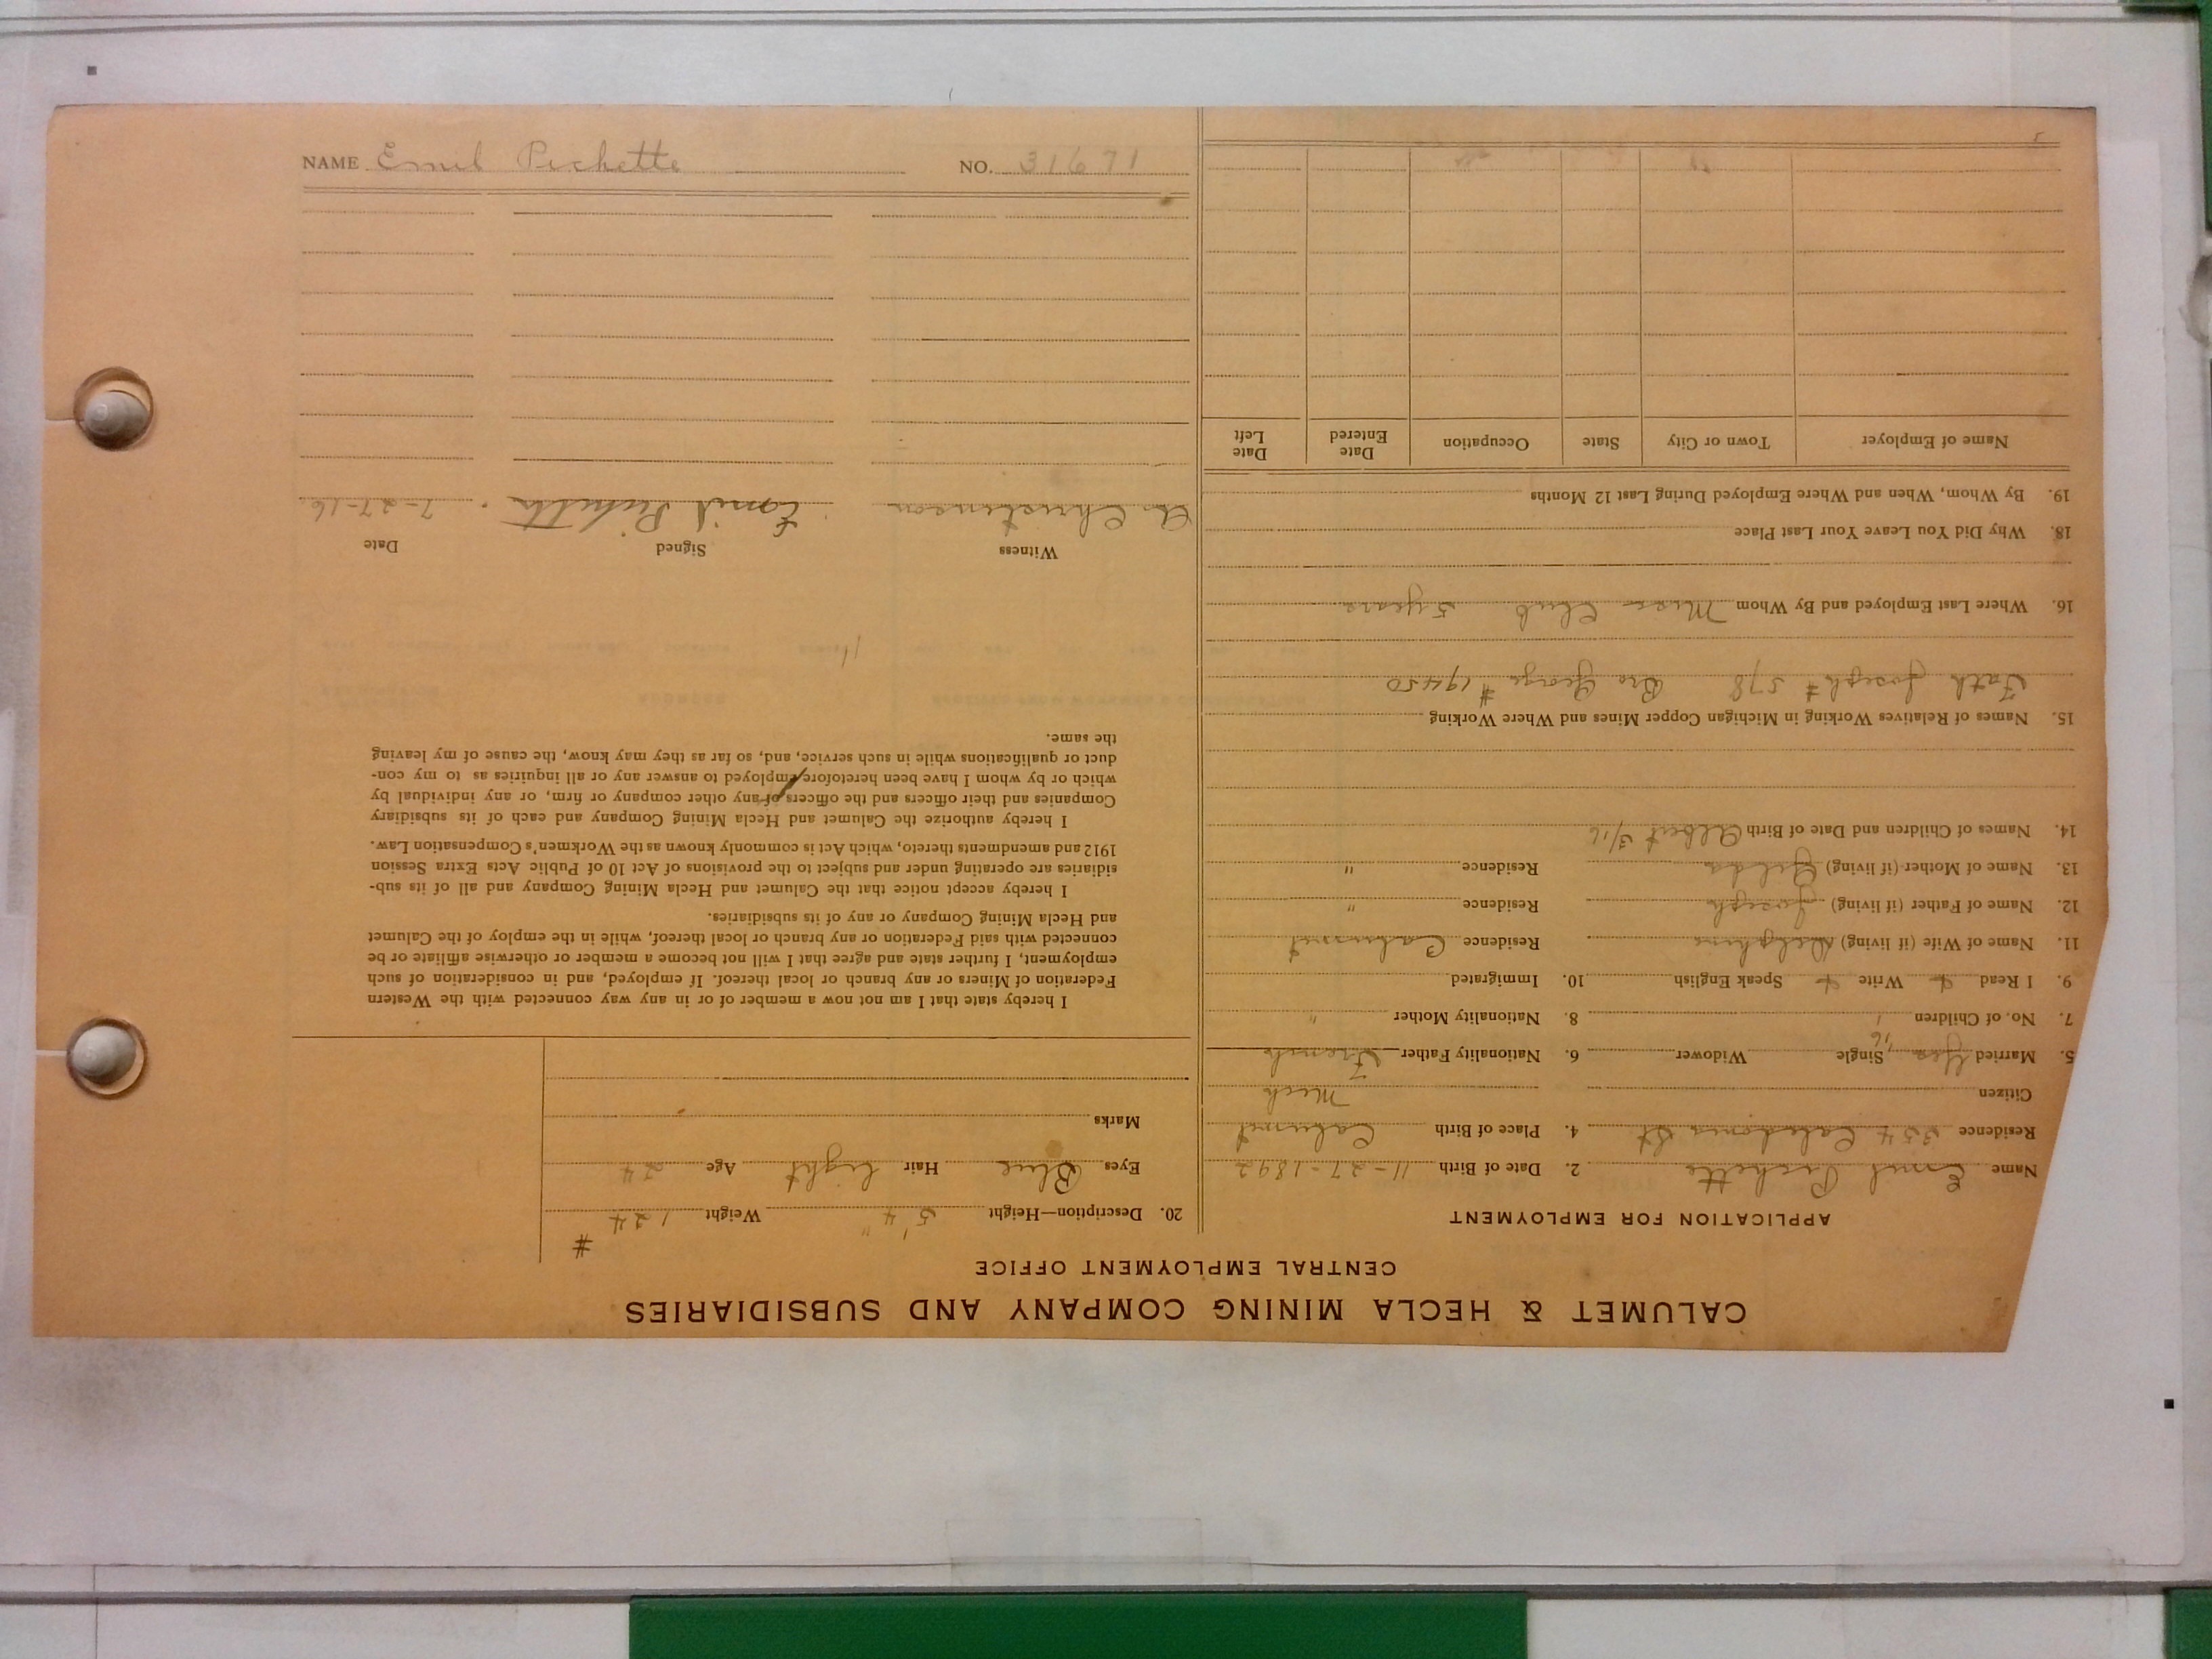 CALUMET & HECLA MINING COMPANY AND SUBSIDIARIES
CENTRAL EMPLOYMENT OFFICE
APPLICATION FOR EMPLOYMENT
Name Emil Pichette 2. Date of Birth 11-27-1892
Residence 354 Caledonia St 4. Place of Birth Calumet
Citizen Mich
5. Married Yes Single Widower 6. Nationality Father French
7. No. of Children 1 8. Nationality Mother "
9. I Read Write Speak English 10. Immigrated
11. Name of Wife (if living) Delphine Residence Calumet
12. Name of Father (if living) Joseph Residence "
13. Name of Mother (if living) Residence "
14. Names of Children and Date of Birth Albert 3/16
15. Names of Relatives Working in Michigan Copper Mines and Where Working
Fath Joseph # 578 Bro George # 19450
16. Where Last Employed and By Whom Club 5 years
18. Why Did You Leave Your Last Place
19. By Whom, When and Where Employed During Last 12 Months
Name of Employer Town or City State Occupation Date Entered Date Left
20. Description—Height 5' 4" Weight 124 #
Eyes Blue Hair light Age 24
Marks
I hereby state that I am not now a member of or in any way connected with the Western
Federation of Miners or any branch or local thereof. If employed, and in consideration of such
employment, I further state and agree that I will not become a member or otherwise affiliate or be
connected with said Federation or any branch or local thereof, while in the employ of the Calumet
and Hecla Mining Company or any of its subsidiaries.
I hereby accept notice that the Calumet and Hecla Mining Company and all of its sub-
sidiaries are operating under and subject to the provisions of Act 10 of Public Acts Extra Session
1912 and amendments thereto, which Act is commonly known as the Workmen's Compensation Law.
I hereby authorize the Calumet and Hecla Mining Company and each of its subsidiary
Companies and their officers and the officers of any other company or firm, or any individual by
which or by whom I have been heretofore employed to answer any or all inquiries as to my con-
duct or qualifications while in such service, and, so far as they may know, the cause of my leaving
the same.
Witness Signed Date
Christensen Emil Pichette 7-27-16
NAME Emil Pichette NO. 31671